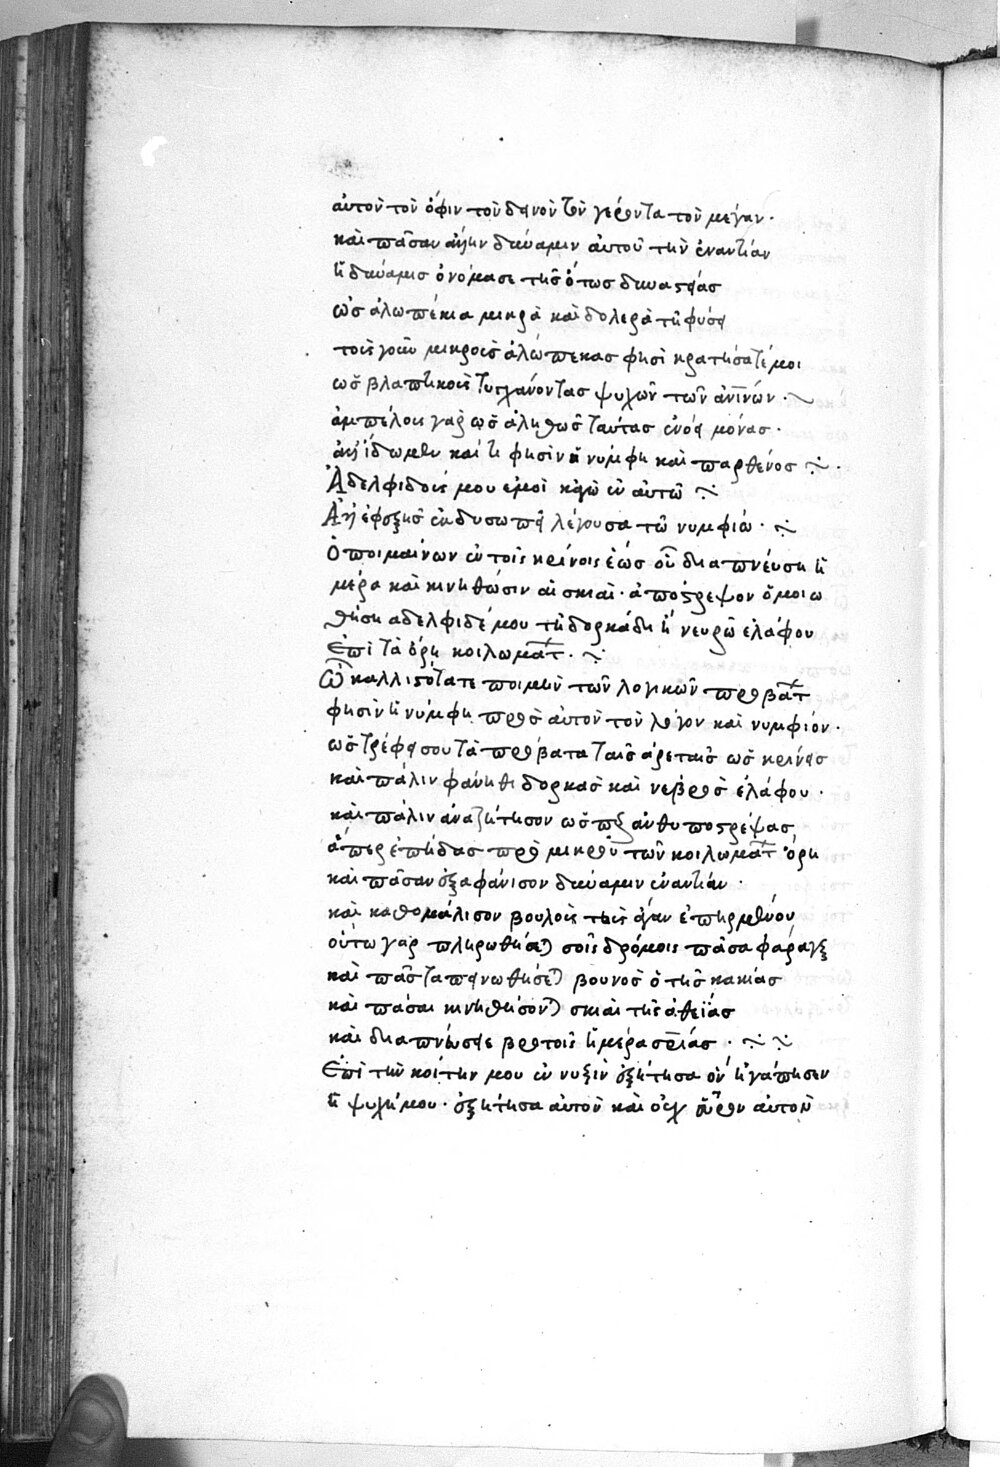 αὐτὸν τὸν ὄφιν τὸν δεινὸν τὸν γέροντα τὸν μέγαν·
καὶ πᾶσαν ἄλλην δύναμιν αὐτοῦ τὴν ἐναντίαν
ἣ δύναμις ὀνόμασε τῆς ὄντως δυναστείας
ὡς ἀλωπέκια μικρὰ καὶ δολερὰ τῇ φύσει
τοὺς γοῦν μικροὺς ἀλώπεκας φησὶ κρατήσατέ μοι
ὡς βλαπτικοὺς τυγχάνοντας ψυχῶν τῶν ἀνίνων·
ἀμπέλους γὰρ ὡς ἀληθῶς ταύτας μόνας·
ἀλλ' ἴδωμεν καὶ τί φησὶν ἡ νύμφη καὶ παρθένος
Ἀδελφιδός μου ἐμοὶ κἀγὼ ἐν αὐτῶ
λέγουσα τῶ νυμφίω·
Ὁ ποιμαίνων ἐν τοῖς κρίνοις ἕως οὗ διαπνεύση ἡ
μέρα καὶ κινηθῶσιν αἱ σκιαί· ἀπόστρεψον ὁμοιώ
θητι ἀδελφιδέ μου τῇ δορκάδι ἢ νευρῶ ἐλάφου
Ἐπὶ τὰ ὄρη κοιλωμάτ·
Ὦ καλλιστότατε ποιμὴν τῶν λογικῶν προβάτ
φησὶν ἡ νύμφη πρὸς αὐτὸν τὸν λόγον καὶ νυμφίον·
ὡς τρέφεις σου τὰ πρόβατα ταῖς ἀρεταῖς ὡς κρίνεις
καὶ πάλιν φάνηθι δορκὰς καὶ νεβρὸς ἐλάφου·
καὶ πάλιν ἀναζήτησον ὡς ἀνθυποστρέψας
ἅπερ ἐπήδας πρὸ μικροῦ τῶν κοιλωμάτ ὄρη
καὶ πᾶσαν ἐξαφάνισον δύναμιν ἐναντίαν·
καὶ καθομάλισον βουνοὺς τοὺς ἄγαν ἐπηρμένου
οὕτω γὰρ πληρωθήσε σοῖς δρόμοις πᾶσα φάραγξ
καὶ πᾶς ταπεινωθήσε βουνὸς ὁ τῆς κακίας
καὶ πᾶσαι κινηθήσον σκιαὶ τῆς ἀθεΐας
καὶ διαπνεύσειε βροτοῖς ἡμέρα σρίας·
Ἐπὶ τὴν κοίτην μου ἐν νυξὶν ἐζήτησα ὃν ἠγάπησεν
ἡ ψυχή μου· ἐζήτησα αὐτὸν καὶ οὐχ εὗρον αὐτὸν